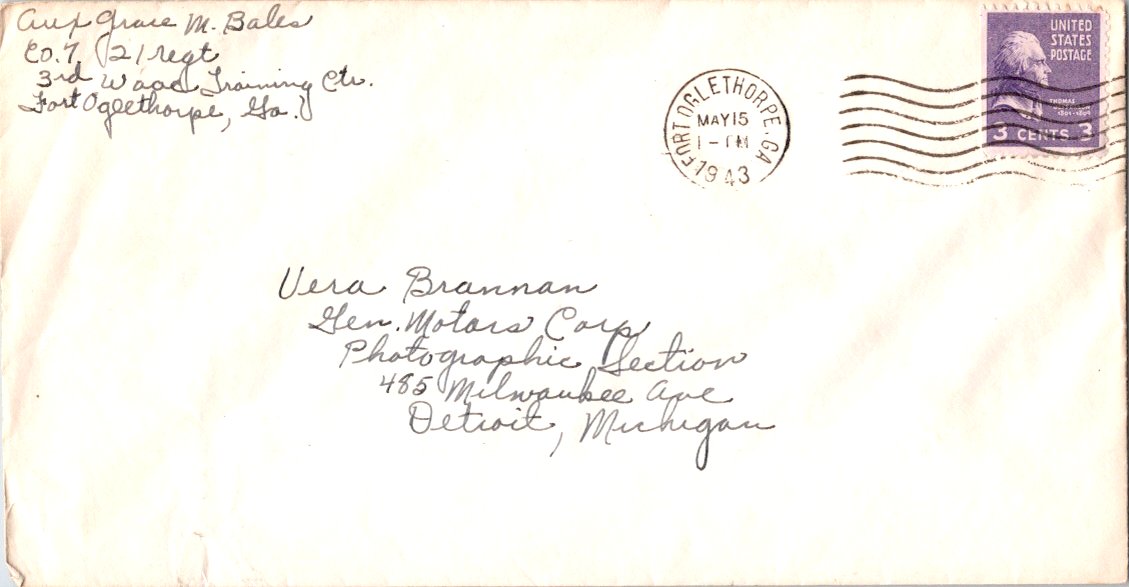 Aux Grace M. Bales
Co. 7, 21 regt
3rd Waac Training Ctr.
Fort Oglethorpe, Ga.
FORT OGLETHORPE, GA
MAY 15
1943
UNITED
STATES
POSTAGE
THOMAS
3 CENTS 3
Vera Brannan
Gen. Motors Corp
Photographic Section
485 Milwaukee Ave
Detroit, Michigan